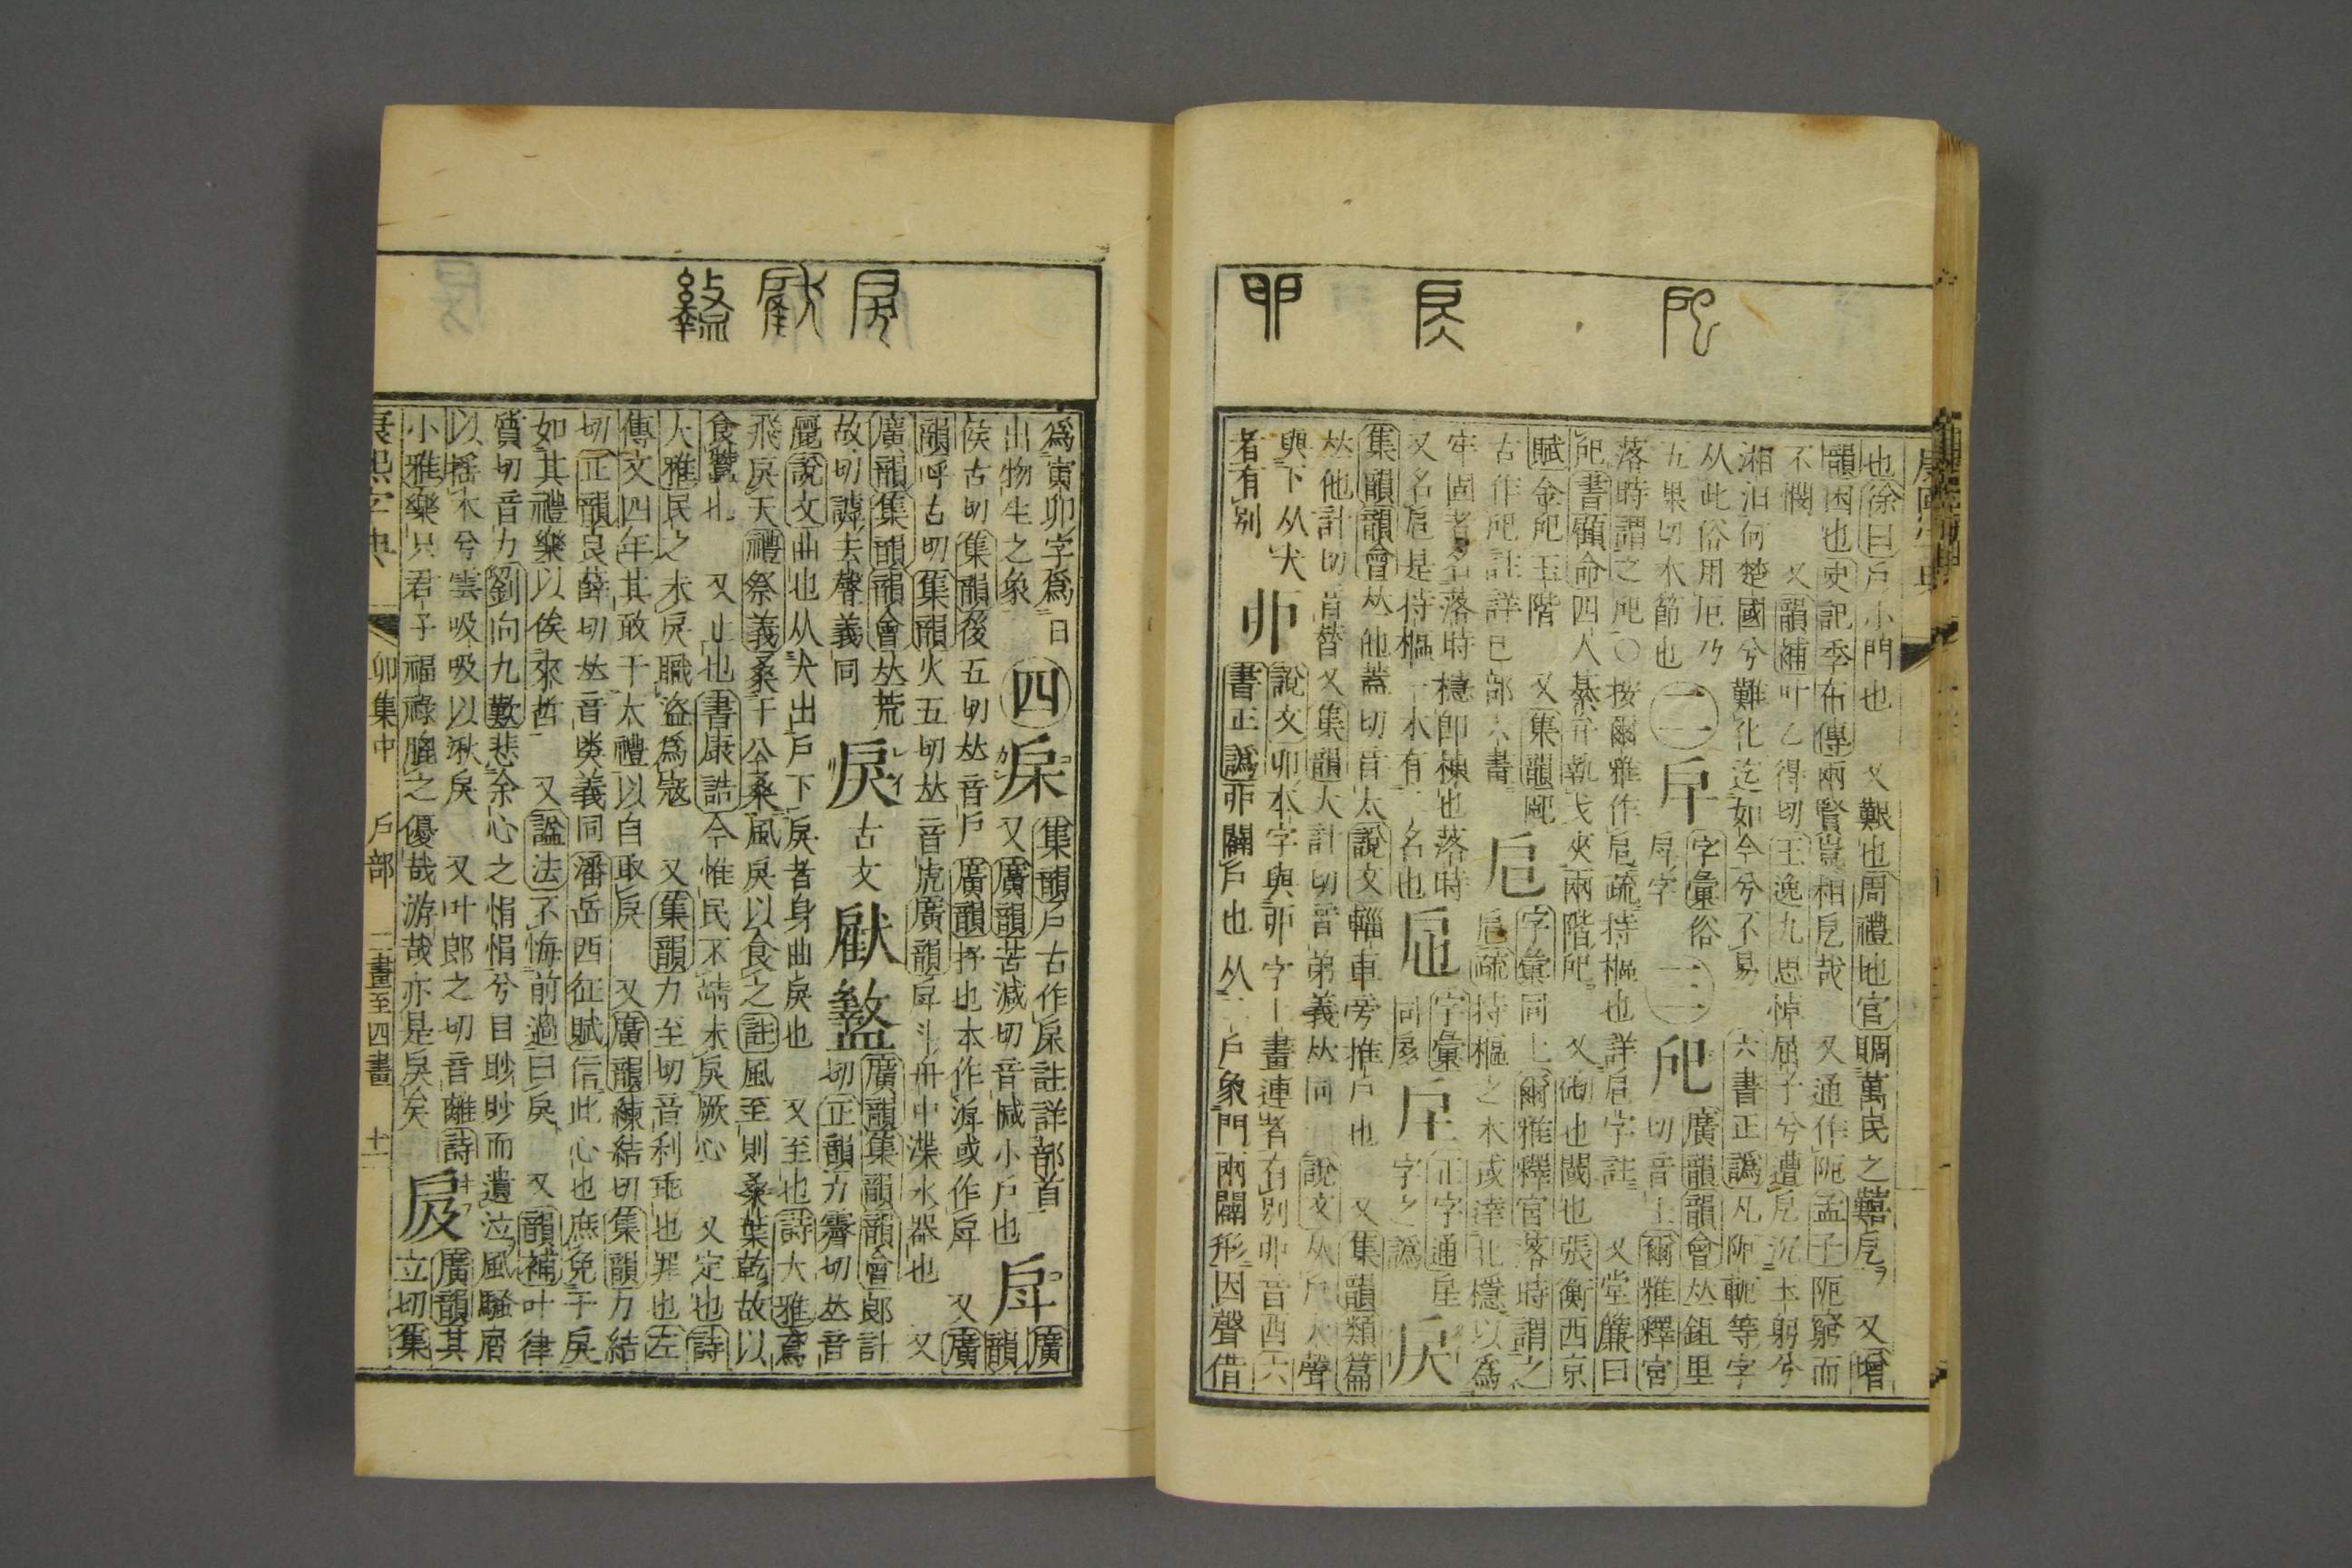 也徐曰戶小門也 又艱也周禮地官賙萬民之囏戹 又增
韻困也史記季布傳兩賢豈相戹哉 又通作阨孟子阨窮而
不憫 又韻補叶乙得切王逸九思悼屈子兮遭戹沉玉躬兮
湘汨何楚國兮難化迄如今兮不易 六書正譌凡阨軛等字
从此俗用厄乃 二 字彙俗 三 戺 廣韻韻會𠀤鉏里
五果切木節也 字 切音士爾雅釋宮
落時謂之戺〇按爾雅作㦿疏持樞也詳㦿字註 又堂簾曰
戺書顧命四人綦弁執戈夾兩階戺 又砌也閾也張衡西京
賦金戺玉階 又集韻 㦿 字彙同上爾雅釋宮落時謂之
古作戺註詳已部六畫 㦿疏持樞之木或達北檼以爲
牢固者名落時檼卽棟也落時 字彙 正字通 戾
又名㦿是持樞一木有二名也 同 字之譌 戻
集韻韻會𠀤他蓋切音太說文輜車旁推戶也 又集韻類篇
𠀤他計切音替又集韻大計切音弟義𠀤同 說文从戶大聲
與下从犬 戼 說文卯本字與丣字一畫連者有別丣音酉六
者有別 書正譌戼闢戶也从二戶象門兩闢形因聲借
爲寅卯字爲二日 四 集韻戶古作註詳部首 戽 廣
出物生之象 又廣韻苦減切音槏小戶也 韻
候古切集韻後五切𠀤音戶廣韻抒也本作滹或作戽 又廣
韻呼古切集韻火五切𠀤音虎廣韻戽斗舟中渫水器也 又
廣韻集韻韻會𠀤荒 戾 古文 盭 廣韻集韻韻會郎計
故切謼去聲義同 切正韻力霽切𠀤音
麗說文曲也从犬出戶下戾者身曲戾也 又至也詩大雅鳶
飛戾天禮祭義桑于公桑風戾以食之註風至則桑葉乾故以
食蠶也 又止也書康誥今惟民不靖未戾厥心 又定也詩
大雅民之未戾職盜爲寇 又集韻力至切音利乖也罪也左
傳文四年其敢干大禮以自取戾 又廣韻練結切集韻力結
切正韻良薛切𠀤音𡘋義同潘岳西征賦信此心也庶免于戾
如其禮樂以俟來哲 又謚法不悔前過曰戾 又韻補叶律
質切音力劉向九歎悲余心之悁悁兮目眇眇而遺泣風騷屑
以搖木兮雲吸吸以湫戾 又叶郎之切音離詩 㞋 廣韻其
小雅樂只君子福祿膍之優哉游哉亦是戾矣 立切集
康熙字典 卯集中 戶部 二畫至四畫 十一